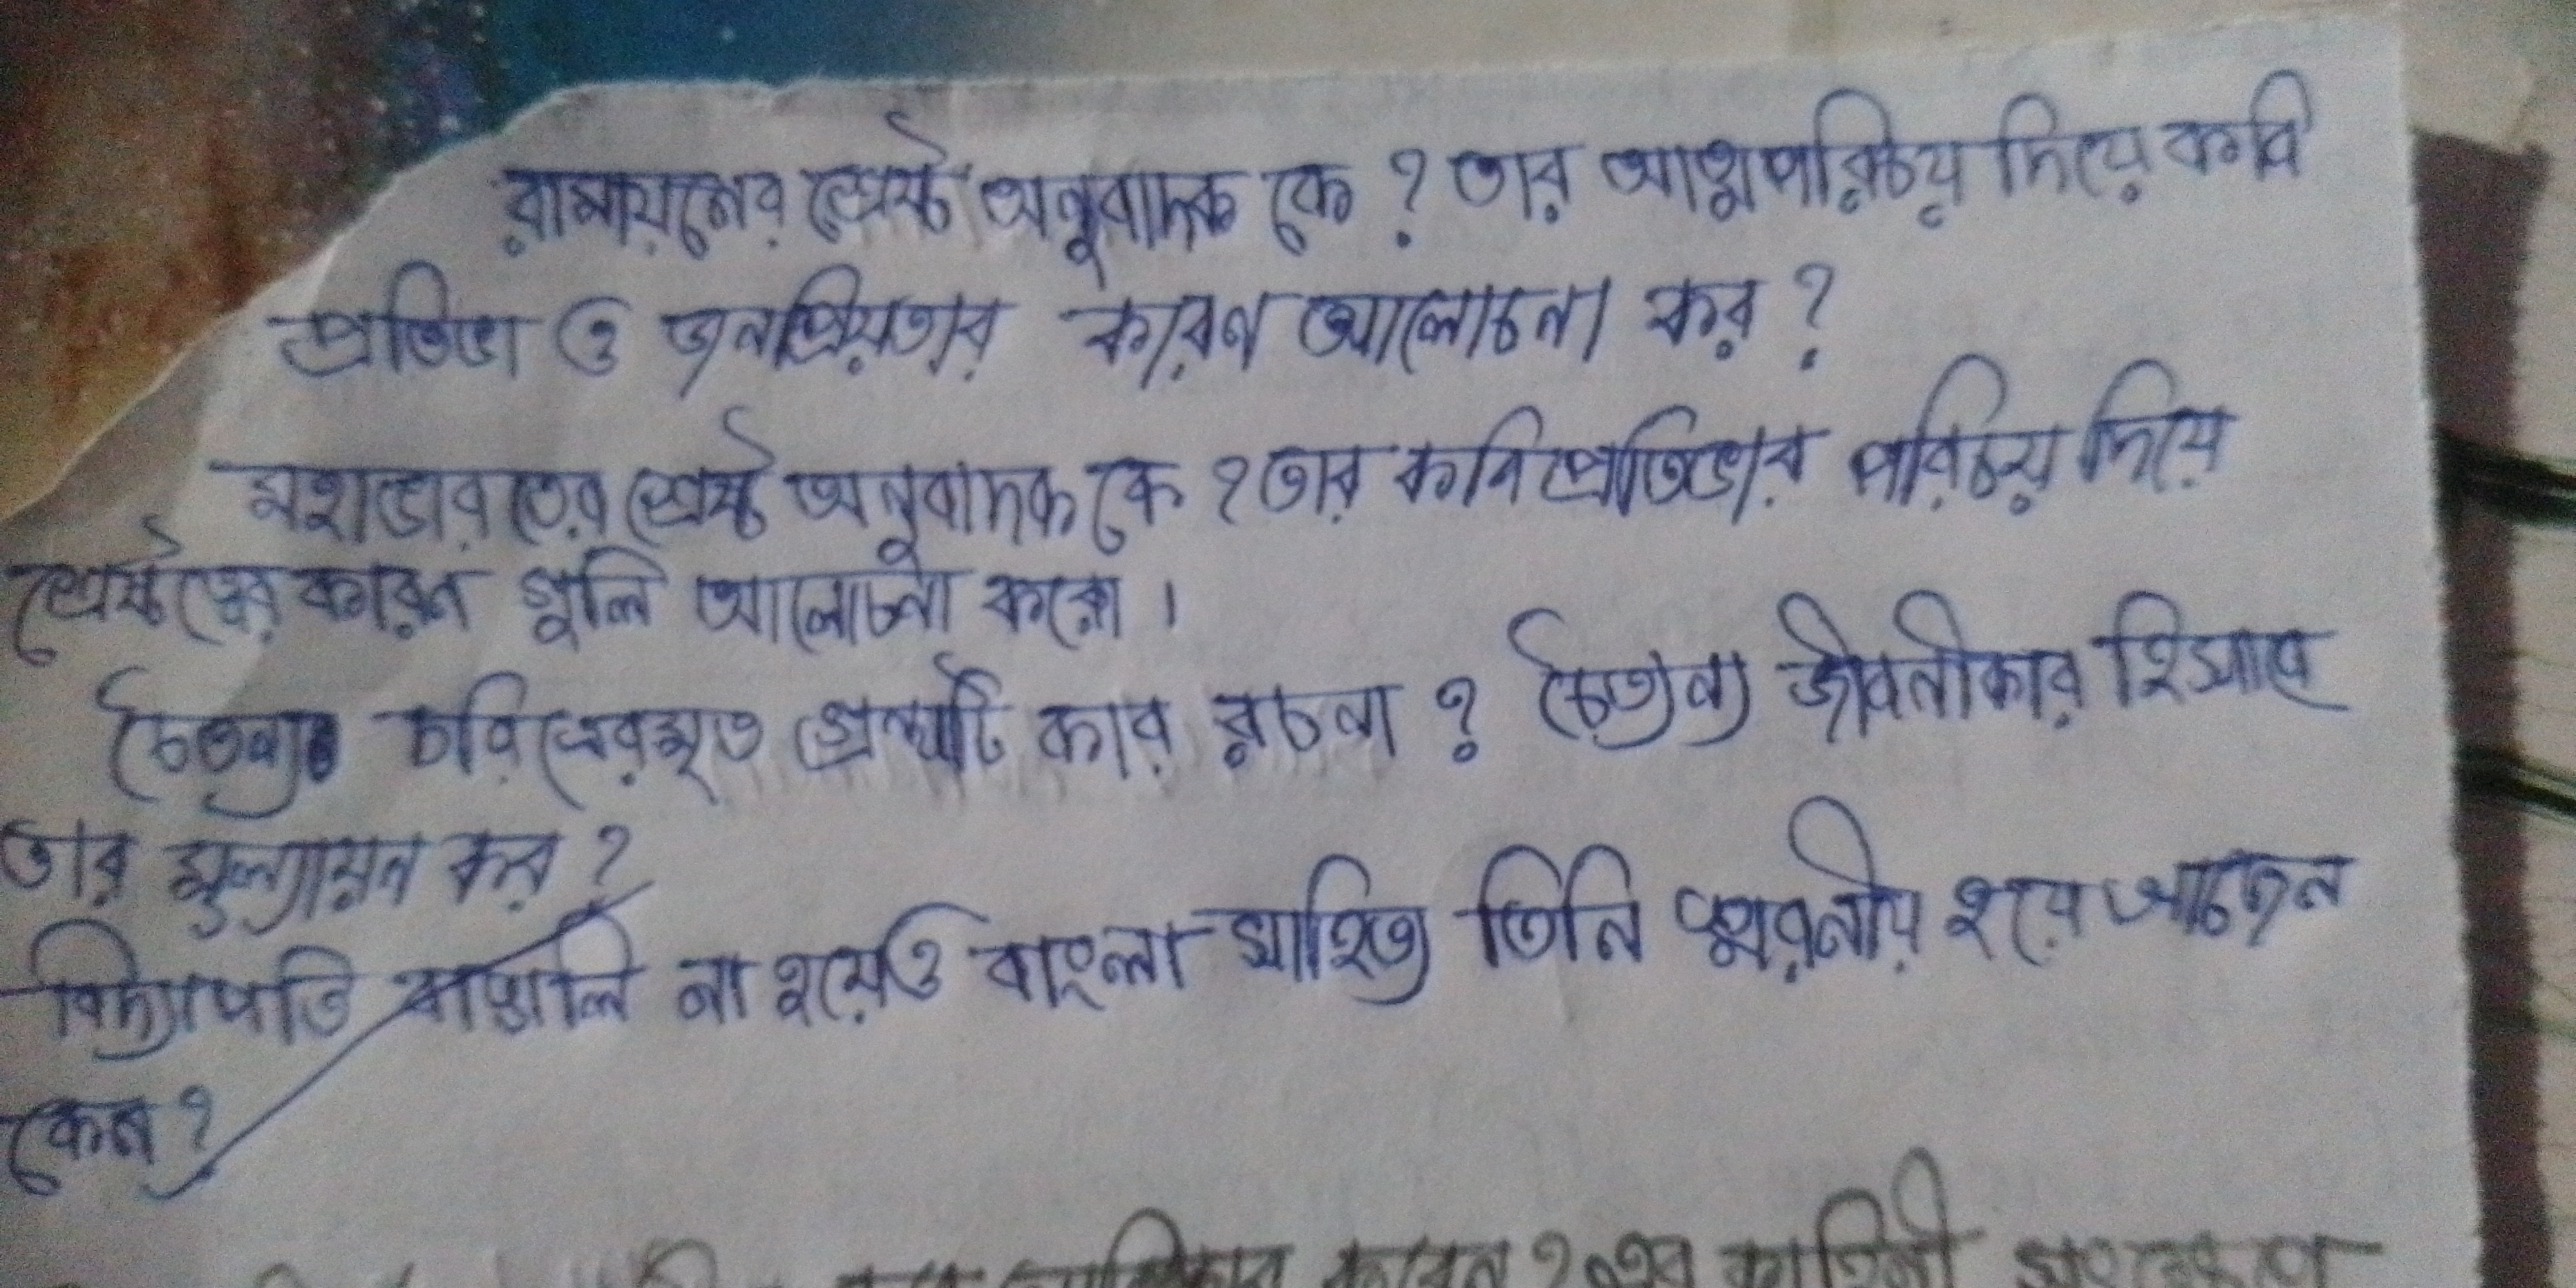 রামায়নের শ্রেষ্ঠ অনুবাদক কে ? তার আত্মপরিচয় দিয়ে কবি
প্রতিভা ও জনপ্রিয়তার কারণ আলোচনা কর ?
মহাভারতের শ্রেষ্ঠ অনুবাদক কে ? তার কবি প্রতিভার পরিচয় দিয়ে
শ্রেষ্ঠত্বের কারন গুলি আলোচনা করো ।
চৈতন্য গ্রন্থটি কার রচনা ? চৈতন্য জীবনীকার হিসাবে
তার মুল্যায়ন কর ?
বিদ্যাপতি বাঙালি না হয়েও বাংলা সাহিত্য তিনি স্মরনীয় হয়ে আছেন
কেন ?
কারন কাহিনী